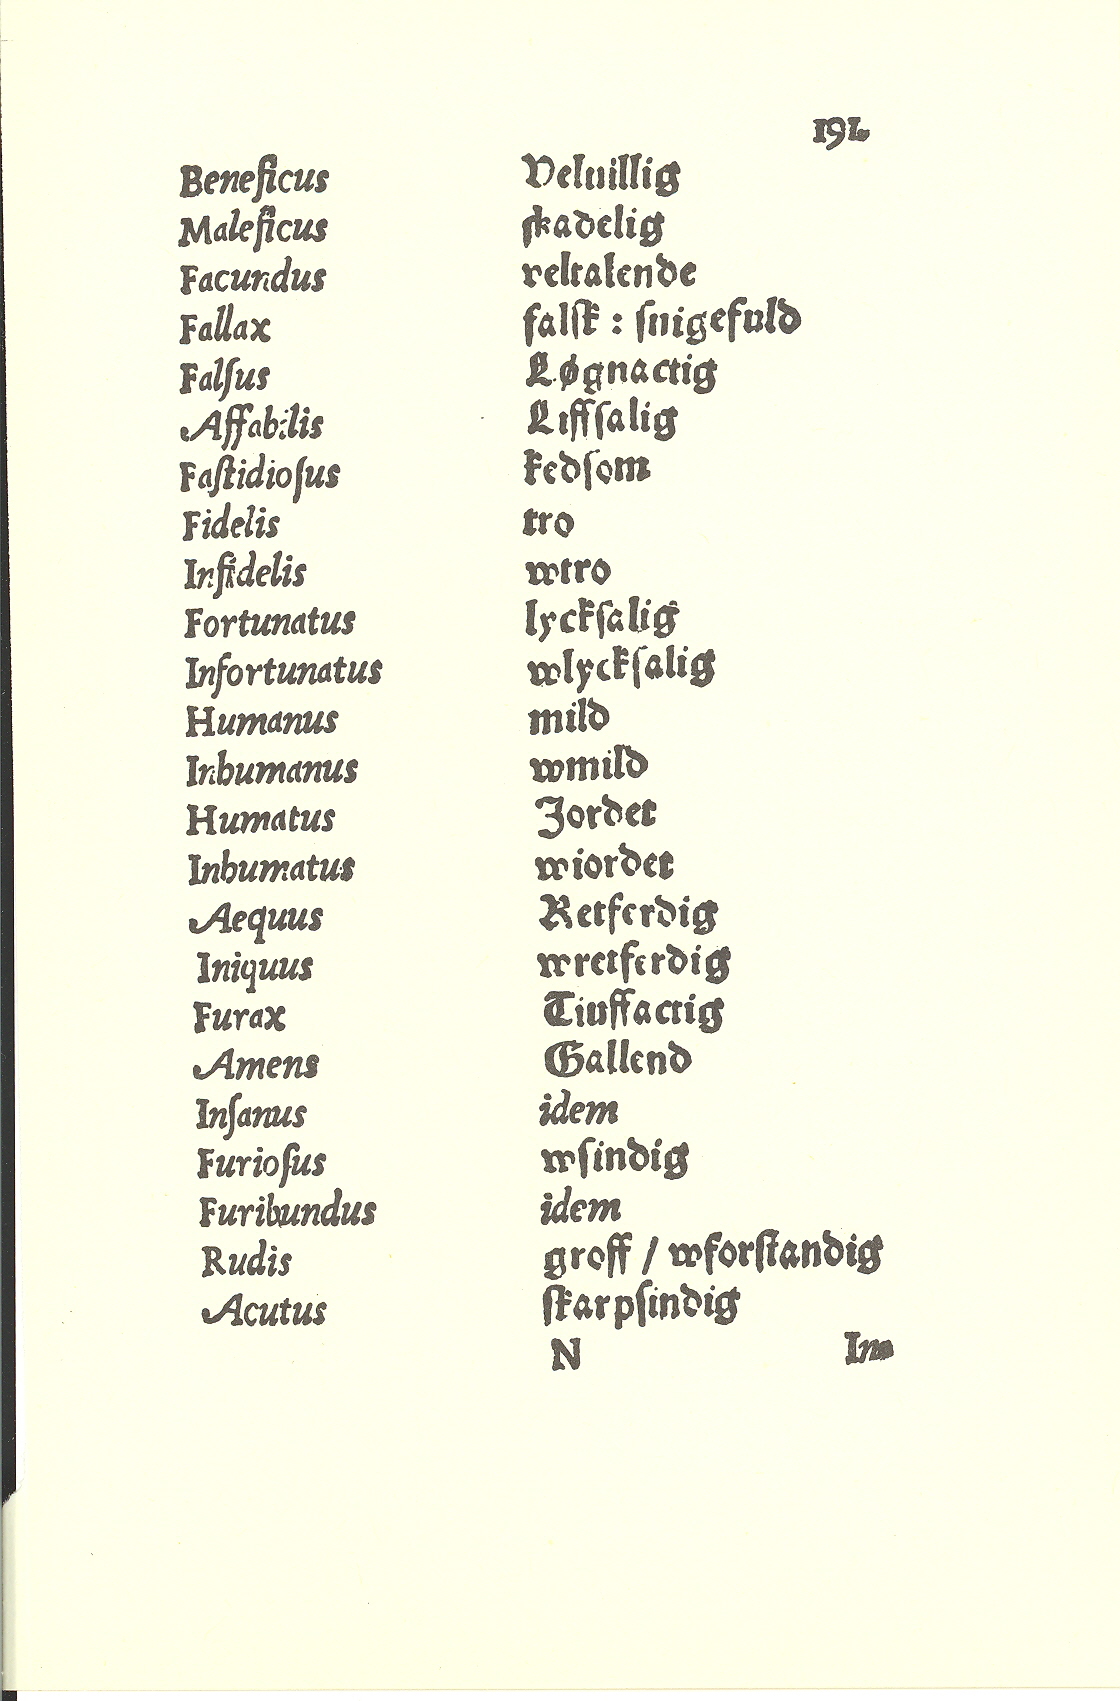 191
Beneficus Veluillig
Maleficus skadelig
Facundus veltalende
Fallax falsk : suigefuld
Falſus Løgnactig
Affabilis Liffſalig
Faſtidioſus kedſom
Fidelis tro
Infidelis wtro
Fortunatus lyckſalig
Infortunatus wlyckſalig
Humanus mild
Inhumanus wmild
Humatus Jordet
Inhumatus wiordet
Aequus Retferdig
Iniquus wretferdig
Furax Tiuffactig
Amens Gallend
Inſanus idem
Furioſus wſindig
Furibundus idem
Rudis groff / wforſtandig
Acutus ſkarpſindig
N In⸗